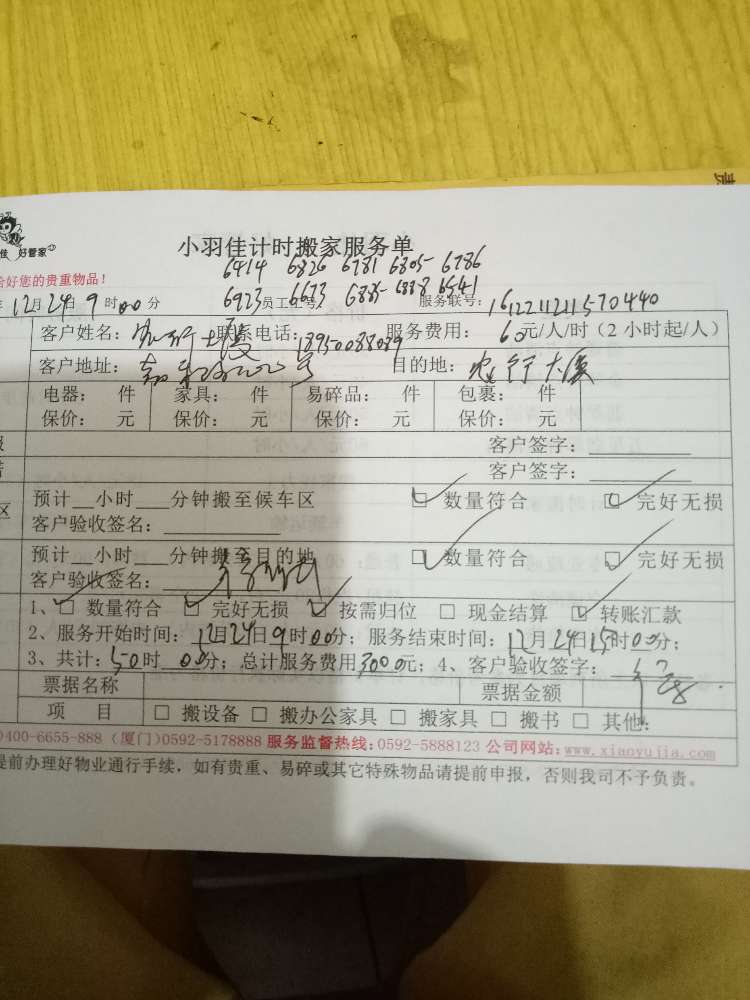 好管家
小羽佳计时搬家服务单
合好您的贵重物品！
6414 6826 6781 6805 6786
6923 6673 6835 6888 6541
12月24日9时00分 员工工号: 服务联号: 1612211211570440
客户姓名: 农行大厦 联系电话: 13950088089 服务费用: 60元/人/时（2小时起/人）
客户地址: 号 目的地: 农行大厦
电器: 件 家具: 件 易碎品: 件 包裹: 件
保价: 元 保价: 元 保价: 元 保价: 元
客户签字:
客户签字:
区 预计__小时___分钟搬至候车区 □ 数量符合 □ 完好无损
客户验收签名:
预计__小时___分钟搬至目的地 □ 数量符合 □ 完好无损
客户验收签名:
1、□ 数量符合 □ 完好无损 □ 按需归位 □ 现金结算 □ 转账汇款
2、服务开始时间: 12月24日9时00分; 服务结束时间: 12月24日15时00分;
3、共计: 50时00分; 总计服务费用3000元; 4、客户验收签字:
票据名称 票据金额
项 目 □ 搬设备 □ 搬办公家具 □ 搬家具 □ 搬书 □ 其他:
400-6655-888（厦门）0592-5178888 服务监督热线:0592-5888123 公司网站:www.xiaoyujia.com
提前办理好物业通行手续，如有贵重、易碎或其它特殊物品请提前申报，否则我司不予负责。